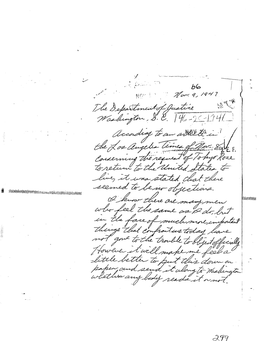 b6
Nov. 9, 1947
The Department of Justice
Washington, D.C.
According to an article in
the Los Angeles Times of Nov.
concerning the request of Tokyo Rose
to return to the United States to
live, it was stated that there
seemed to be no objections.
I know there are many men
who feel the same as I do, but
in the face of much more important
things that confront us today, have
not gone to the trouble to object officially.
However it will make me feel a
little better to put this down on
paper and send it along to Washington
whether anybody reads it or not.
299